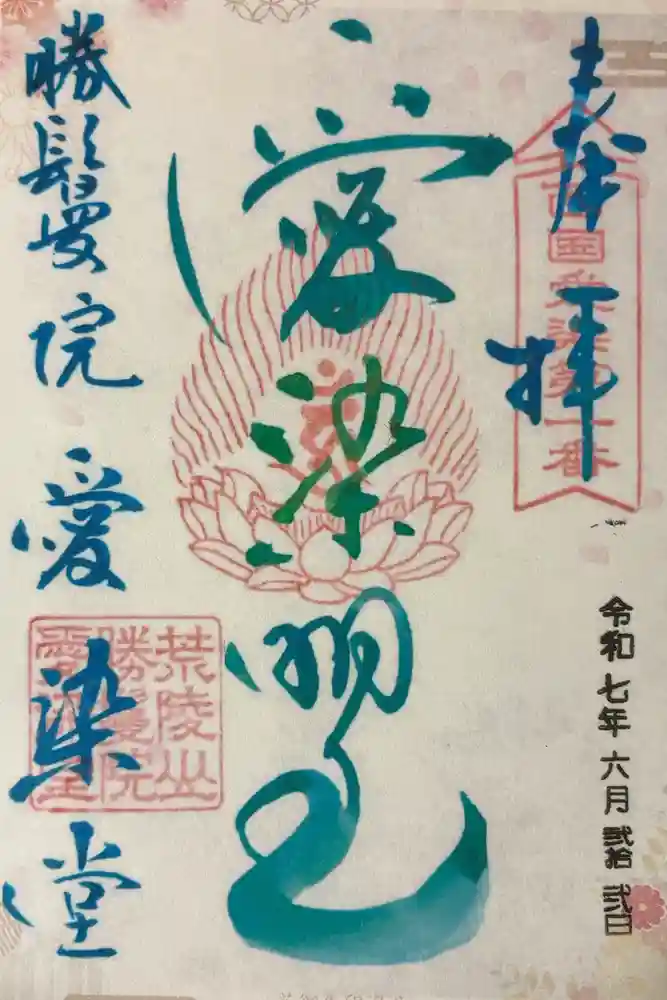 奉拝
西国愛染第一番
令和七年六月弐拾弐日
愛染明王
勝鬘院愛染堂
荒陵山
勝鬘院
愛染堂